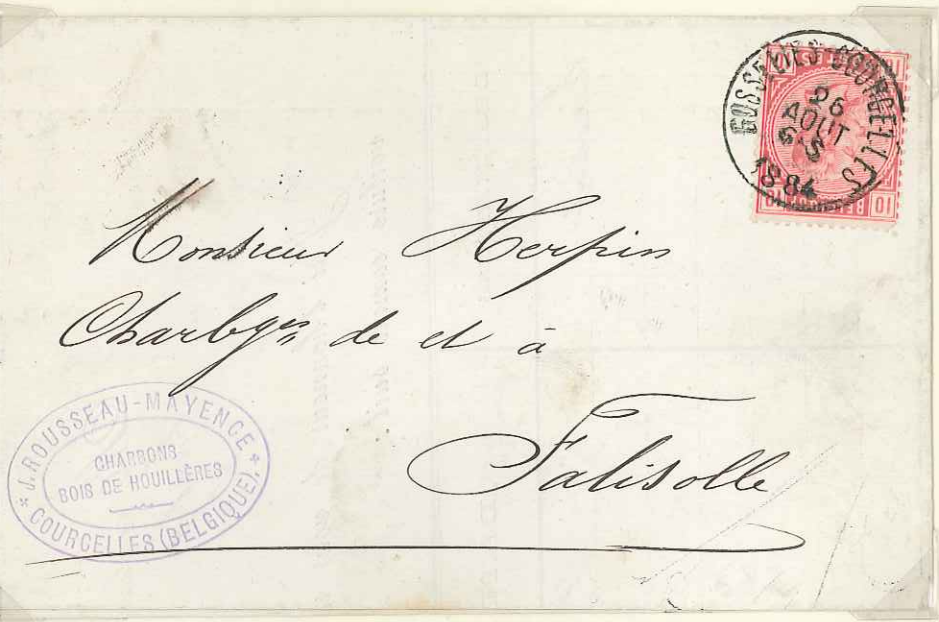 GOSSELIES-COURCELLES
26
AOUT
5-S
1884
10 BELGIQUE 10
Monsieur Herpin
Charbges de et à
Falisolle
J. ROUSSEAU-MAYENCE
CHARBONS
BOIS DE HOUILLÈRES
COURCELLES (BELGIQUE).